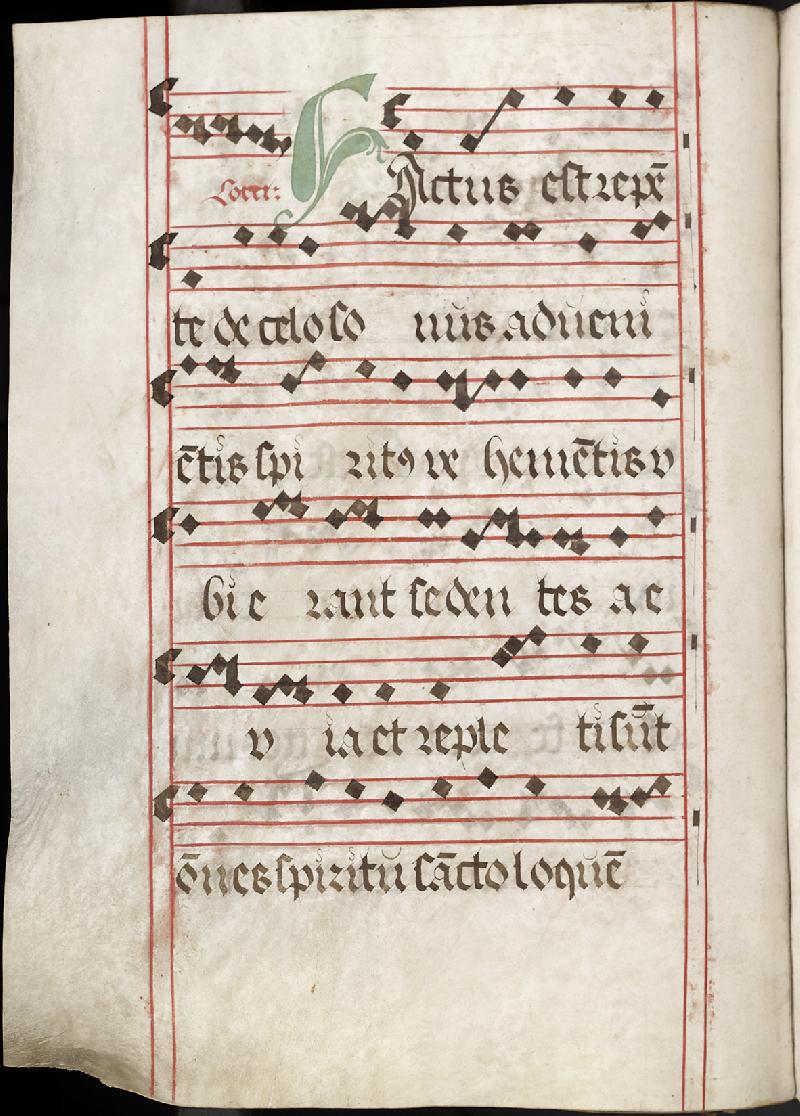 Com̄: FActus est repē
te de celo so nus adueni
ētis spi ritꝯ ve hemētis v
bi e rant seden tes a e
v ia et reple ti sūt
ōnes spiritu sācto loquē